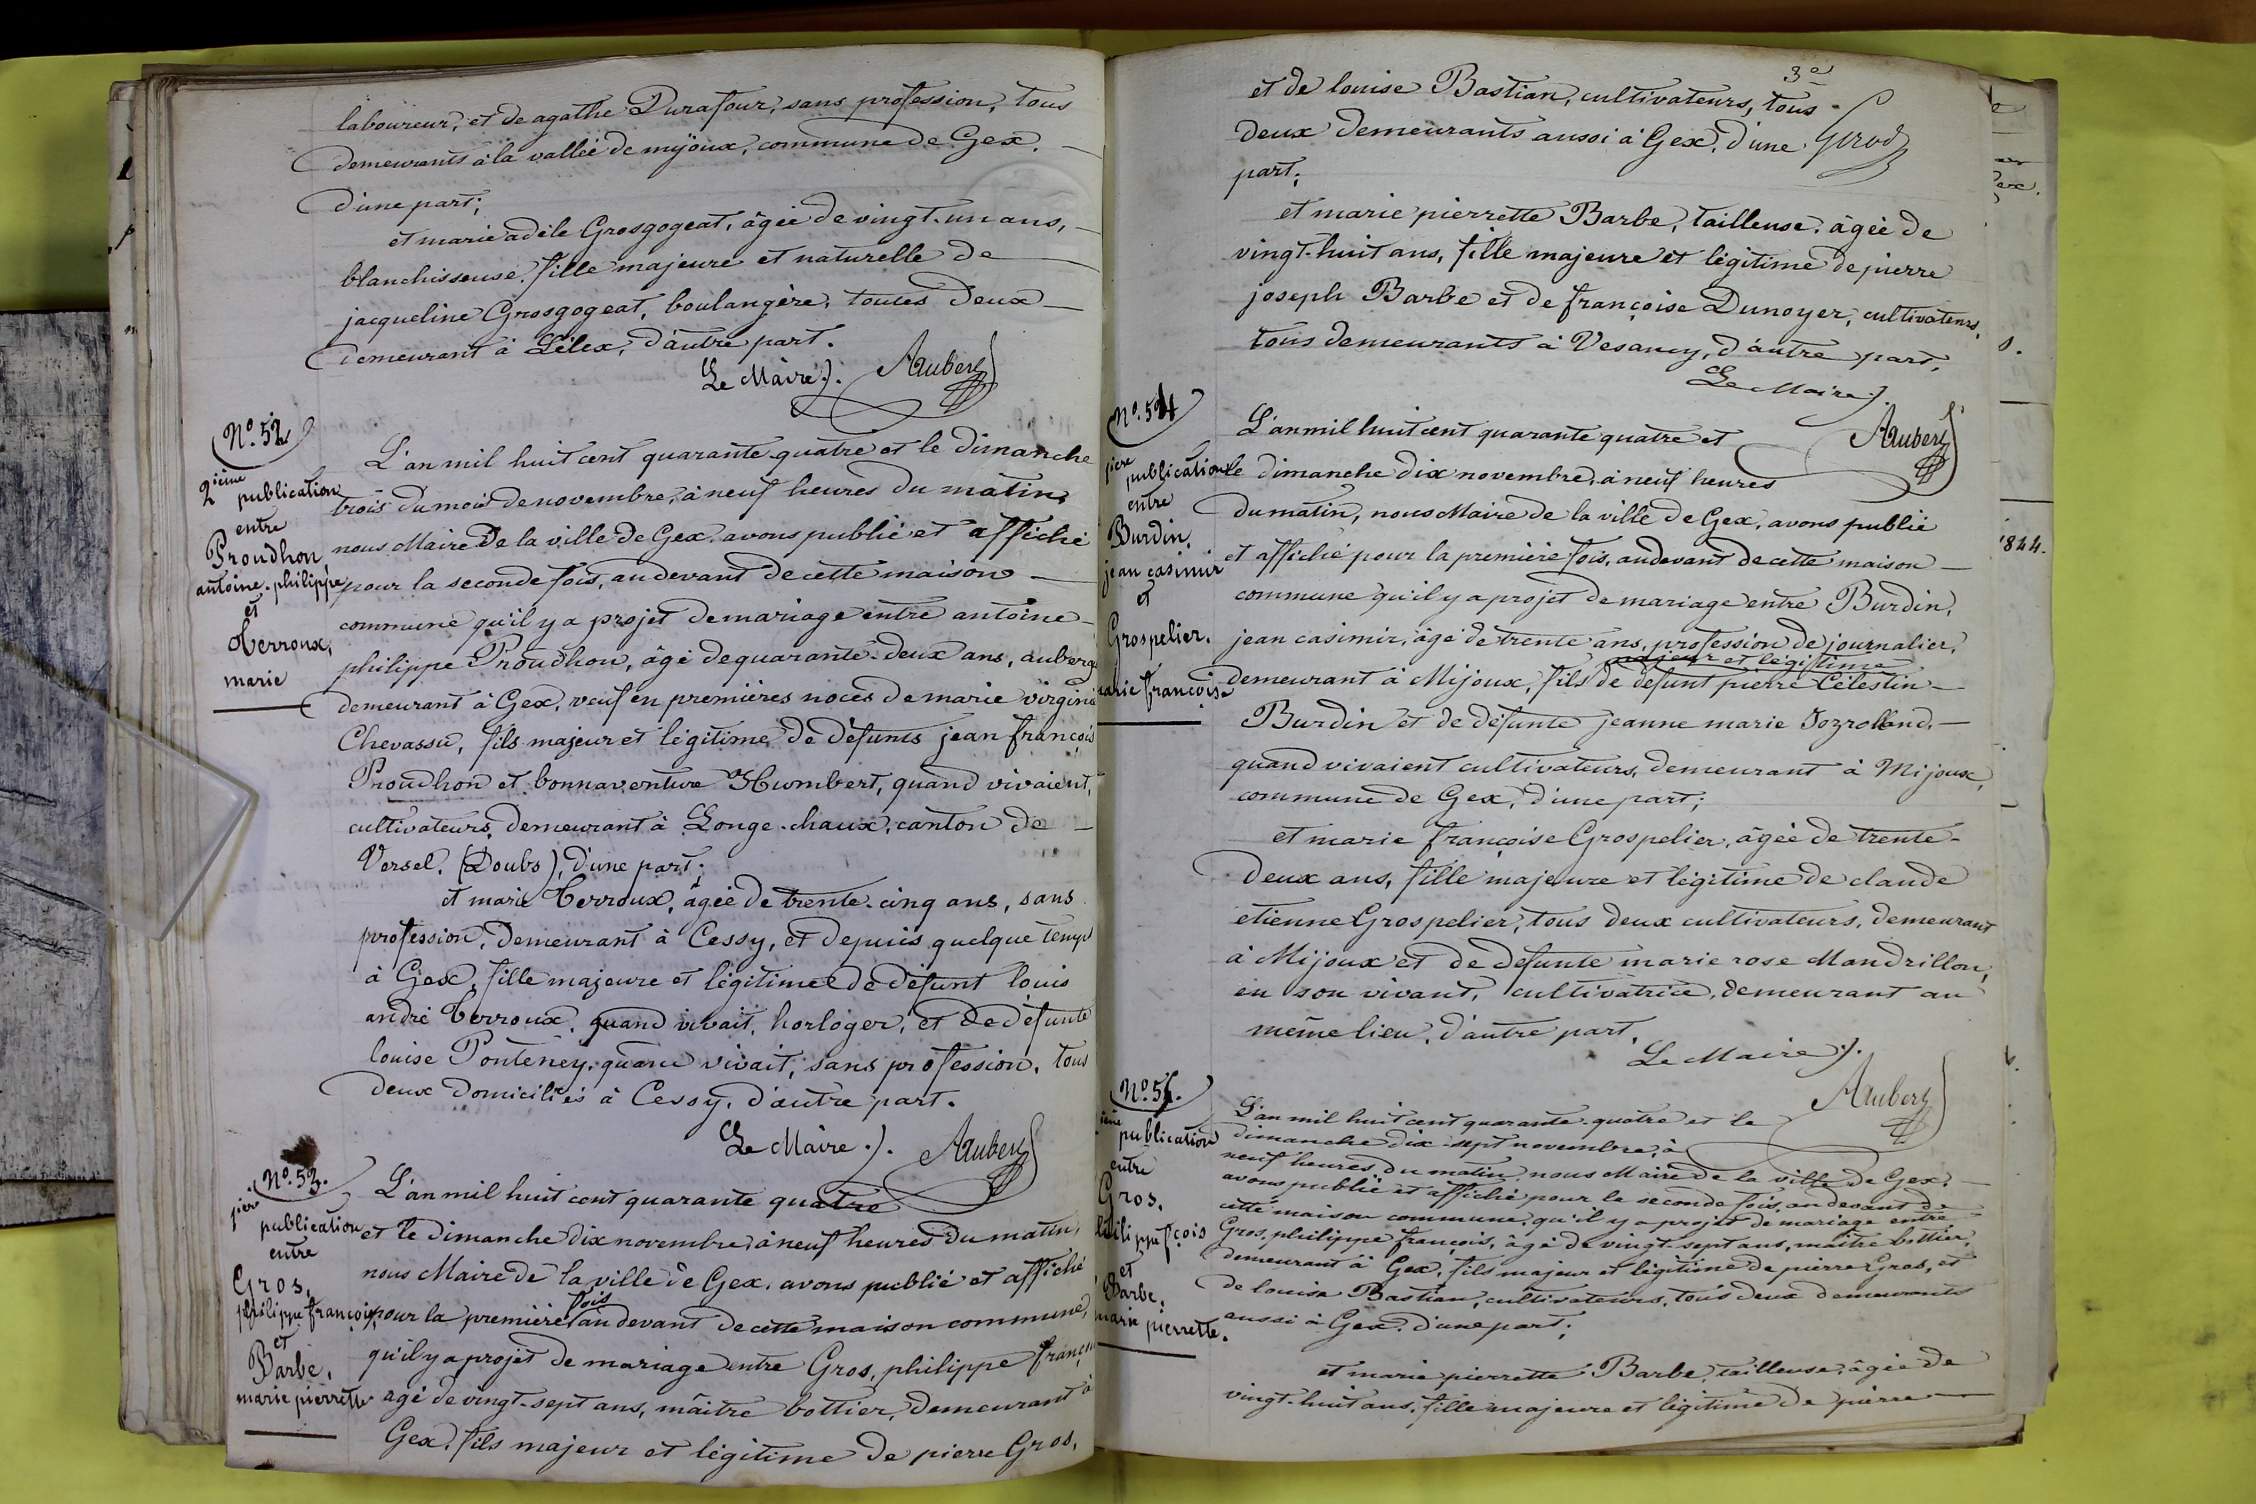 laboureur, et de agathe Durafour, sans profession, tous
demeurants à la vallée de mijoux, commune de Gex,
d'une part;
et marie adèle Grosgogeat, âgée de vingt-un ans,
blanchisseuse, fille majeure et naturelle de
jacqueline Grosgogeat, boulangère, toutes deux
demeurant à Lélex, d'autre part.
Le Maire). Aubery
N°. 52
2ième publication
entre
Proudhon
antoine-philippe
et
Terroux,
marie
L'an mil huit cent quarante quatre et le dimanche
trois du mois de novembre, à neuf heures du matin,
nous Maire de la ville de Gex, avons publié et affiché
pour la seconde fois, au devant de cette maison
commune qu'il y a projet de mariage entre antoine
philippe Proudhon, âgé de quarante-deux ans, auberg
demeurant à Gex, veuf en premières noces de marie virginie
Chevassu, fils majeur et légitime de défunts jean françois
Proudhon et bonnaventure Humbert, quand vivaient,
cultivateurs, demeurant à Longe-chaux, canton de
Versel, (Doubs), d'une part;
et marie Terroux, âgée de trente-cinq ans, sans
profession, demeurant à Cessy, et depuis quelque temps
à Gex, fille majeure et légitime de défunt louis
andré Terroux, quand vivait, horloger, et de défunte
louise Ponteney, quand vivait, sans profession, tous
deux domiciliés à Cessy, d'autre part.
Le Maire). Aubery
N°. 53.
1ière publication
entre
Gros,
philippe françois
et
Barbe,
marie pierrette
L'an mil huit cent quarante quatre
et le dimanche dix novembre, à neuf heures du matin,
nous Maire de la ville de Gex, avons publié et affiché
pour la première fois au devant de cette maison commune,
qu'il y a projet de mariage entre Gros, philippe françois
agé de vingt-sept ans, maître bottier, demeurant à
Gex, fils majeur et légitime de pierre Gros,
et de louise Bastian, cultivateurs, tous
deux demeurants aussi à Gex, d'une
part;
et marie pierrette Barbe, tailleuse, âgée de
vingt-huit ans, fille majeure et légitime de pierre
joseph Barbe et de françoise Dunoyer, cultivateurs,
tous demeurants à Vesancy, d'autre part,
Le Maire).
Aubery
N°. 54
1ière publication
entre
Burdin,
jean casimir
et
Grospelier.
marie françoise
L'an mil huit cent quarante quatre et
le dimanche dix novembre, à neuf heures
du matin, nous Maire de la ville de Gex, avons publié
et affiché pour la première fois, au devant de cette maison
commune qu'il y a projet de mariage entre Burdin,
jean casimir, âgé de trente ans, profession de journalier,
majeur et légitime
demeurant à Mijoux, fils de défunt pierre Célestin
Burdin et de défunte jeanne marie
quand vivaient cultivateurs, demeurant à Mijoux,
commune de Gex, d'une part;
et marie françoise Grospelier, âgée de trente-
deux ans, fille majeure et légitime de claude
etienne Grospelier, tous deux cultivateurs, demeurant
à Mijoux et de défunte marie rose Mandrillon,
en son vivant, cultivatrice, demeurant au
même lieu, d'autre part.
Le Maire).
Aubery
N°. 55.
publication
entre
Gros,
philippe fçois
et
Barbe,
marie pierrette.
L'an mil huit cent quarante-quatre et le
dimanche dix-sept novembre, à
neuf heures du matin, nous Maire de la ville de Gex,
avons publié et affiché pour la seconde fois, au devant de
cette maison commune, qu'il y a projet de mariage entre
Gros, philippe françois, âgé de vingt-sept ans, maître bottier,
demeurant à Gex, fils majeur et légitime de pierre Gros, et
de louise Bastian, cultivateurs, tous deux demeurants
aussi à Gex, d'une part;
et marie pierrette Barbe, tailleuse, âgée de
vingt-huit ans, fille majeure et légitime de pierre
1844.